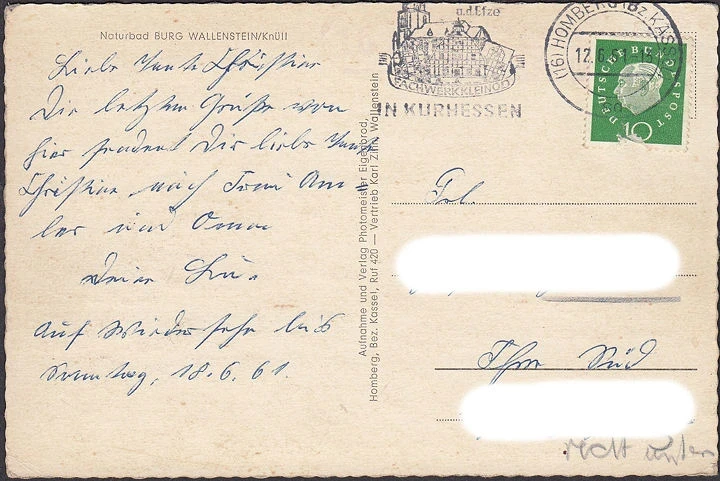 Naturbad BURG WALLENSTEIN/Knüll
Liebe Tante Christine
Die letzten Grüße von
hier sendet Dir liebe Tante
Christine auch
und Oma
Deine
Auf Wiedersehn bis
Sonntag, 18.6.61.
Aufnahme und Verlag Photomeister Eigenbrod,
Homberg, Bez. Kassel, Ruf 420 — Vertrieb Karl Wallenstein
FACHWERKKLEINOD
IN KURHESSEN
(16) HOMBERG (BZ. KASSEL)
12.6.61
DEUTSCHE BUNDESPOST
10
Frl.
Süd